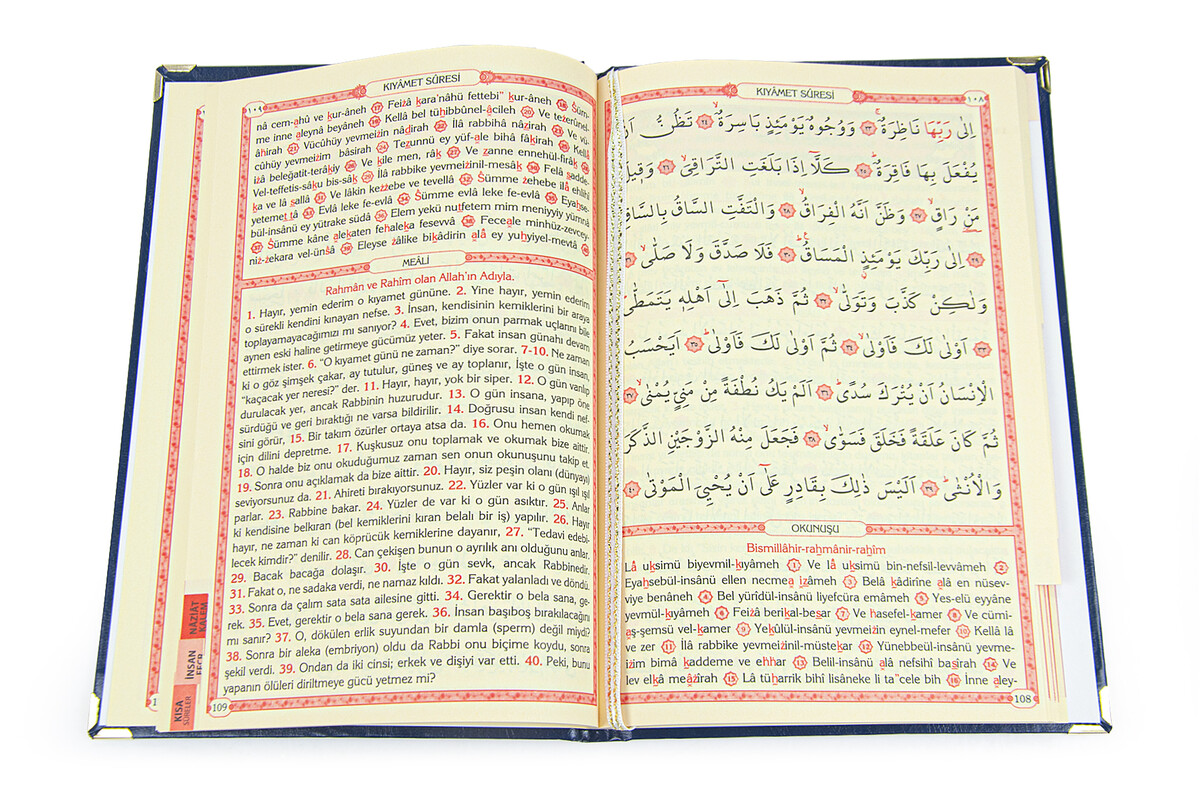 KIYÂMET SÛRESİ
١٠٨
اِلٰى رَبِّهَا نَاظِرَةٌۚ ﴿٢٣﴾ وَوُجُوهٌ يَوْمَئِذٍ بَاسِرَةٌۙ ﴿٢٤﴾ تَظُنُّ اَنْ
يُفْعَلَ بِهَا فَاقِرَةٌۜ ﴿٢٥﴾ كَلَّٓا اِذَا بَلَغَتِ التَّرَاقِيَۙ ﴿٢٦﴾ وَقِيلَ
مَنْ رَاقٍۙ ﴿٢٧﴾ وَظَنَّ اَنَّهُ الْفِرَاقُۙ ﴿٢٨﴾ وَالْتَفَّتِ السَّاقُ بِالسَّاقِۙ
﴿٢٩﴾ اِلٰى رَبِّكَ يَوْمَئِذٍ الْمَسَاقُۜ ﴿٣٠﴾ فَلَا صَدَّقَ وَلَا صَلّٰىۙ ﴿٣١﴾
وَلٰكِنْ كَذَّبَ وَتَوَلّٰىۙ ﴿٣٢﴾ ثُمَّ ذَهَبَ اِلٰٓى اَهْلِه۪ يَتَمَطّٰىۜ
﴿٣٣﴾ اَوْلٰى لَكَ فَاَوْلٰىۙ ﴿٣٤﴾ ثُمَّ اَوْلٰى لَكَ فَاَوْلٰىۜ ﴿٣٥﴾ اَيَحْسَبُ
الْاِنْسَانُ اَنْ يُتْرَكَ سُدًىۜ ﴿٣٦﴾ اَلَمْ يَكُ نُطْفَةً مِنْ مَنِيٍّ يُمْنٰىۙ ﴿٣٧﴾
ثُمَّ كَانَ عَلَقَةً فَخَلَقَ فَسَوّٰىۙ ﴿٣٨﴾ فَجَعَلَ مِنْهُ الزَّوْجَيْنِ الذَّكَرَ
وَالْاُنْثٰىۜ ﴿٣٩﴾ اَلَيْسَ ذٰلِكَ بِقَادِرٍ عَلٰٓى اَنْ يُحْيِيَ الْمَوْتٰى ﴿٤٠﴾
OKUNUŞU
Bismillâhir-rahmânir-rahîm
Lâ uksimü biyevmil-kıyâmeh 1 Ve lâ uksimü bin-nefsil-levvâmeh 2
Eyahsebül-insânü ellen necmea ızâmeh 3 Belâ kâdirîne alâ en nüsev-
viye benâneh 4 Bel yürîdül-insânü liyefcüra emâmeh 5 Yes-elü eyyâne
yevmül-kıyâmeh 6 Feizâ berikal-besar 7 Ve hasefel-kamer 8 Ve cümi-
aş-şemsü vel-kamer 9 Yekûlül-insânü yevmeizin eynel-mefer 10 Kellâ lâ
ve zer 11 İlâ rabbike yevmeizinil-müstekar 12 Yünebbeül-insânü yevme-
izim bimâ kaddeme ve ehhar 13 Belil-insânü alâ nefsihî basîrah 14 Ve
lev elkâ meâzîrah 15 Lâ tüharrik bihî lisâneke li ta"cele bih 16 İnne aley-
108
KIYÂMET SÛRESİ
١٠٩
nâ cem-ahû ve kur-âneh 17 Feizâ kara'nâhü fettebi" kur-âneh 18 Süm-
me inne aleynâ beyâneh 19 Kellâ bel tühıbbûnel-âcileh 20 Ve tezerûnel-
âhirah 21 Vücûhüy yevmeizin nâdirah 22 İlâ rabbihâ nâzirah 23 Ve vü-
cûhüy yevmeizim bâsirah 24 Tezunnü ey yüf-ale bihâ fâkirah 25 Kellâ
izâ beleğatit-terâkıy 26 Ve kîle men, râk 27 Ve zanne ennehül-firâk 28
Vel-teffetis-sâku bis-sâk 29 İlâ rabbike yevmeizinil-mesâk 30 Felâ sadde-
ka ve lâ sallâ 31 Ve lâkin kezzebe ve tevellâ 32 Sümme zehebe ilâ ehlihî
yetemet tâ 33 Evlâ leke fe-evlâ 34 Sümme evlâ leke fe-evlâ 35 Eyahse-
bül-insânü ey yütrake südâ 36 Elem yekü nutfetem mim meniyyiy yümnâ
37 Sümme kâne alekaten fehaleka fesevvâ 38 Feceale minhüz-zevcey-
niz-zekara vel-ünsâ 39 Eleyse zâlike bikâdirin alâ ey yuhyiyel-mevtâ 40
MEÂLİ
Rahmân ve Rahîm olan Allah'ın Adıyla.
1. Hayır, yemin ederim o kıyamet gününe. 2. Yine hayır, yemin ederim
o sürekli kendini kınayan nefse. 3. İnsan, kendisinin kemiklerini bir araya
toplayamayacağımızı mı sanıyor? 4. Evet, bizim onun parmak uçlarını bile
aynen eski haline getirmeye gücümüz yeter. 5. Fakat insan günahı devam
ettirmek ister. 6. “O kıyamet günü ne zaman?” diye sorar. 7-10. Ne zaman
ki o göz şimşek çakar, ay tutulur, güneş ve ay toplanır, İşte o gün insan,
“kaçacak yer neresi?” der. 11. Hayır, hayır, yok bir siper. 12. O gün varılıp
durulacak yer, ancak Rabbinin huzurudur. 13. O gün insana, yapıp öne
sürdüğü ve geri bıraktığı ne varsa bildirilir. 14. Doğrusu insan kendi nef-
sini görür, 15. Bir takım özürler ortaya atsa da. 16. Onu hemen okumak
için dilini depretme. 17. Kuşkusuz onu toplamak ve okumak bize aittir.
18. O halde biz onu okuduğumuz zaman sen onun okunuşunu takip et.
19. Sonra onu açıklamak da bize aittir. 20. Hayır, siz peşin olanı (dünyayı)
seviyorsunuz da. 21. Ahireti bırakıyorsunuz. 22. Yüzler var ki o gün ışıl ışıl
parlar. 23. Rabbine bakar. 24. Yüzler de var ki o gün asıktır. 25. Anlar
ki kendisine belkıran (bel kemiklerini kıran belalı bir iş) yapılır. 26. Hayır
hayır, ne zaman ki can köprücük kemiklerine dayanır, 27. “Tedavi edebi-
lecek kimdir?” denilir. 28. Can çekişen bunun o ayrılık anı olduğunu anlar.
29. Bacak bacağa dolaşır. 30. İşte o gün sevk, ancak Rabbinedir.
31. Fakat o, ne sadaka verdi, ne namaz kıldı. 32. Fakat yalanladı ve döndü.
33. Sonra da çalım sata sata ailesine gitti. 34. Gerektir o bela sana, ge-
rek. 35. Evet, gerektir o bela sana gerek. 36. İnsan başıboş bırakılacağını
mı sanır? 37. O, dökülen erlik suyundan bir damla (sperm) değil miydi?
38. Sonra bir aleka (embriyo) oldu da Rabbi onu biçime koydu, sonra
şekil verdi. 39. Ondan da iki cinsi; erkek ve dişiyi var etti. 40. Peki, bunu
yapanın ölüleri diriltmeye gücü yetmez mi?
109
NÂZİÂT
KALEM
İNSAN
FECR
KISA
SÛRELER